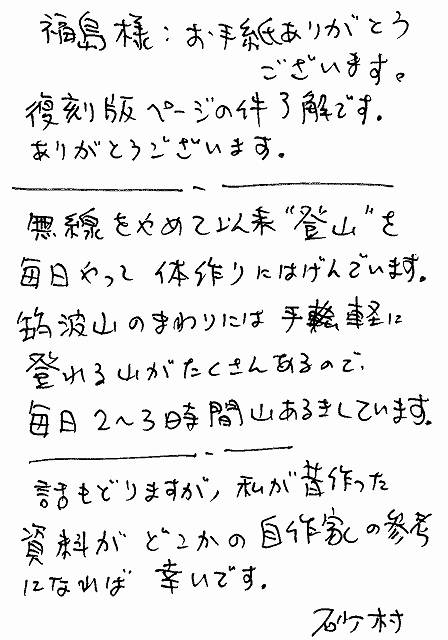 福島様：お手紙ありがとう
ございます。
復刻版ページの件了解です.
ありがとうございます.
無線をやめて以来“登山”を
毎日やって 体作りにはげんでいます.
筑波山のまわりには 手軽に
登れる山がたくさんあるので、
毎日 2〜3時間山あるきしています.
話もどりますが, 私が昔作った
資料が どこかの自作家の参考
になれば 幸いです.
砂村